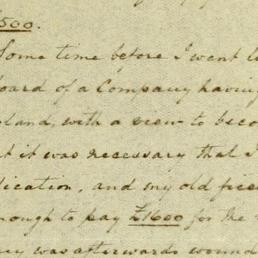 £500.
Some time before I went
board of a Company having
land, with a view to
it was necessary that I
ication, and my old
nough to pay £1600 for the
was afterwards wound